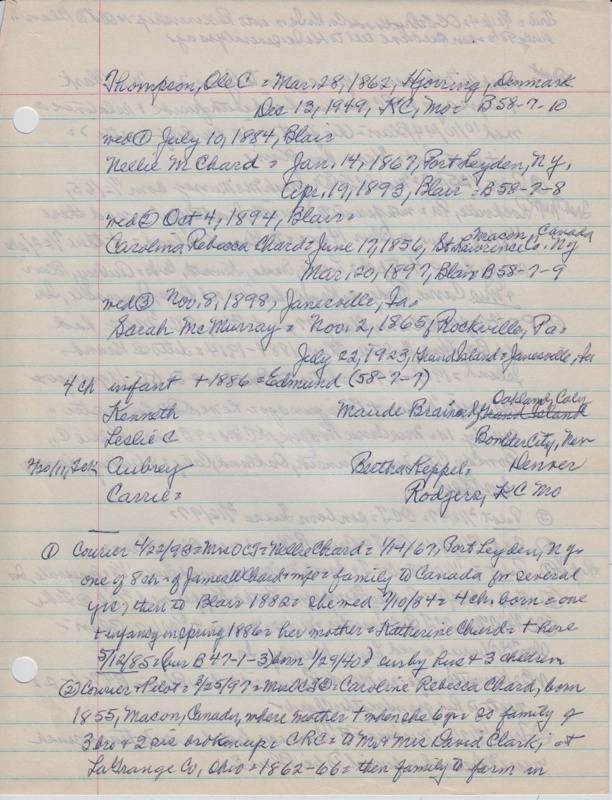 Thompson, Ole C = Mar. 28, 1862, Hjorring, Denmark
Dec 13, 1949, KC, Mo = B 58-7-10
med ① July 10, 1884, Blair
Nellie M Chard = Jan. 14, 1867, Port Leyden, Ny,
Apr. 19, 1893, Blair = B 58-7-8
med ② Oct 4, 1894, Blair =
Carolina Rebecca Chard = June 17, 1856, St Lawrence Co, Ny Macon, Canada
Mar. 20, 1897, Blair B 58-7-9
med ③ Nov. 8, 1898, Janesville, Ia =
Sarah McMurray = Nov. 2, 1865, Rockville, Pa =
July 22, 1923, Grand Island = Janesville, Ia
4 ch infant + 1886 = Edmund (58-7-7)
Kenneth Maude Brainerd, Grand Island Oakland, Caly
Leslie C Boulder City, Nev
Aubrey Bertha Keppel = Denver
Carrie = Rodgers, KC Mo
① Courier 4/22/93 = Mrs OCT = Nellie Chard = 1/14/67, Port Leyden, N y =
one of 8 ch of James W Chard + wife = family to Canada for several
yrs, then to Blair 1882 = she med 7/10/84 = 4 ch. born = one
+ infancy in spring 1886 = her mother = Katherine Chard = + here
5/12/85 = (bur B 47-1-3) born 1/29/40) surv by hus + 3 children
② Courier + Pilot = 3/25/97 = Mrs OCT ② = Caroline Rebecca Chard, born
1855, Macon, Canada, where mother + when she 6 yr so family of
3 bro + 2 sis broken up = CRC = to Mr + Mrs David Clark, at
LaGrange Co, Ohio = 1862-66 = then family to farm in